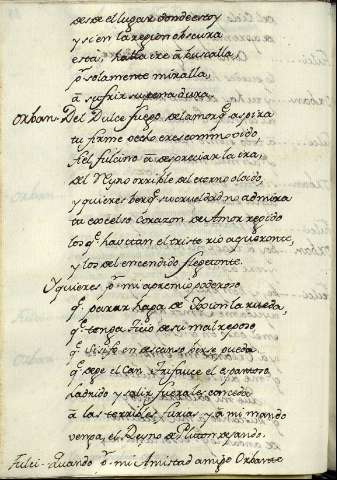 desde el lugar donde estoy
y si en la region obscura
esta, hasta ire â buscalla
pª solamente miralla,
â sufrir su pena dura.
Orban- Del Dulce fuego del amor qᵉ aspira
tu firme pecho eres conmovido,
fiel fulcino â despreciar la ira,
del Reyno orrible del eterno olvido,
y quieres ber qᵉ su crueldad no admira
tu excelso corazon de Amor regido
los qᵉ havitan el triste rio aqueronte,
y los del encendido flegetonte.
Y quieres pʳ mi apremio poderoso
qᵉ parar haga de Ixion la rueda,
qᵉ tenga Ticio de su mal reposo,
qᵉ Sisifo en descanso berse pueda
qᵉ deje el Can trifauce el espantoso
ladrido y salir fuera les conceda
â las terribles furias y â mi mando
venga, el Reyno de Pluton dejando.
Fulci- Quando pʳ mi Amistad amigo Orbante